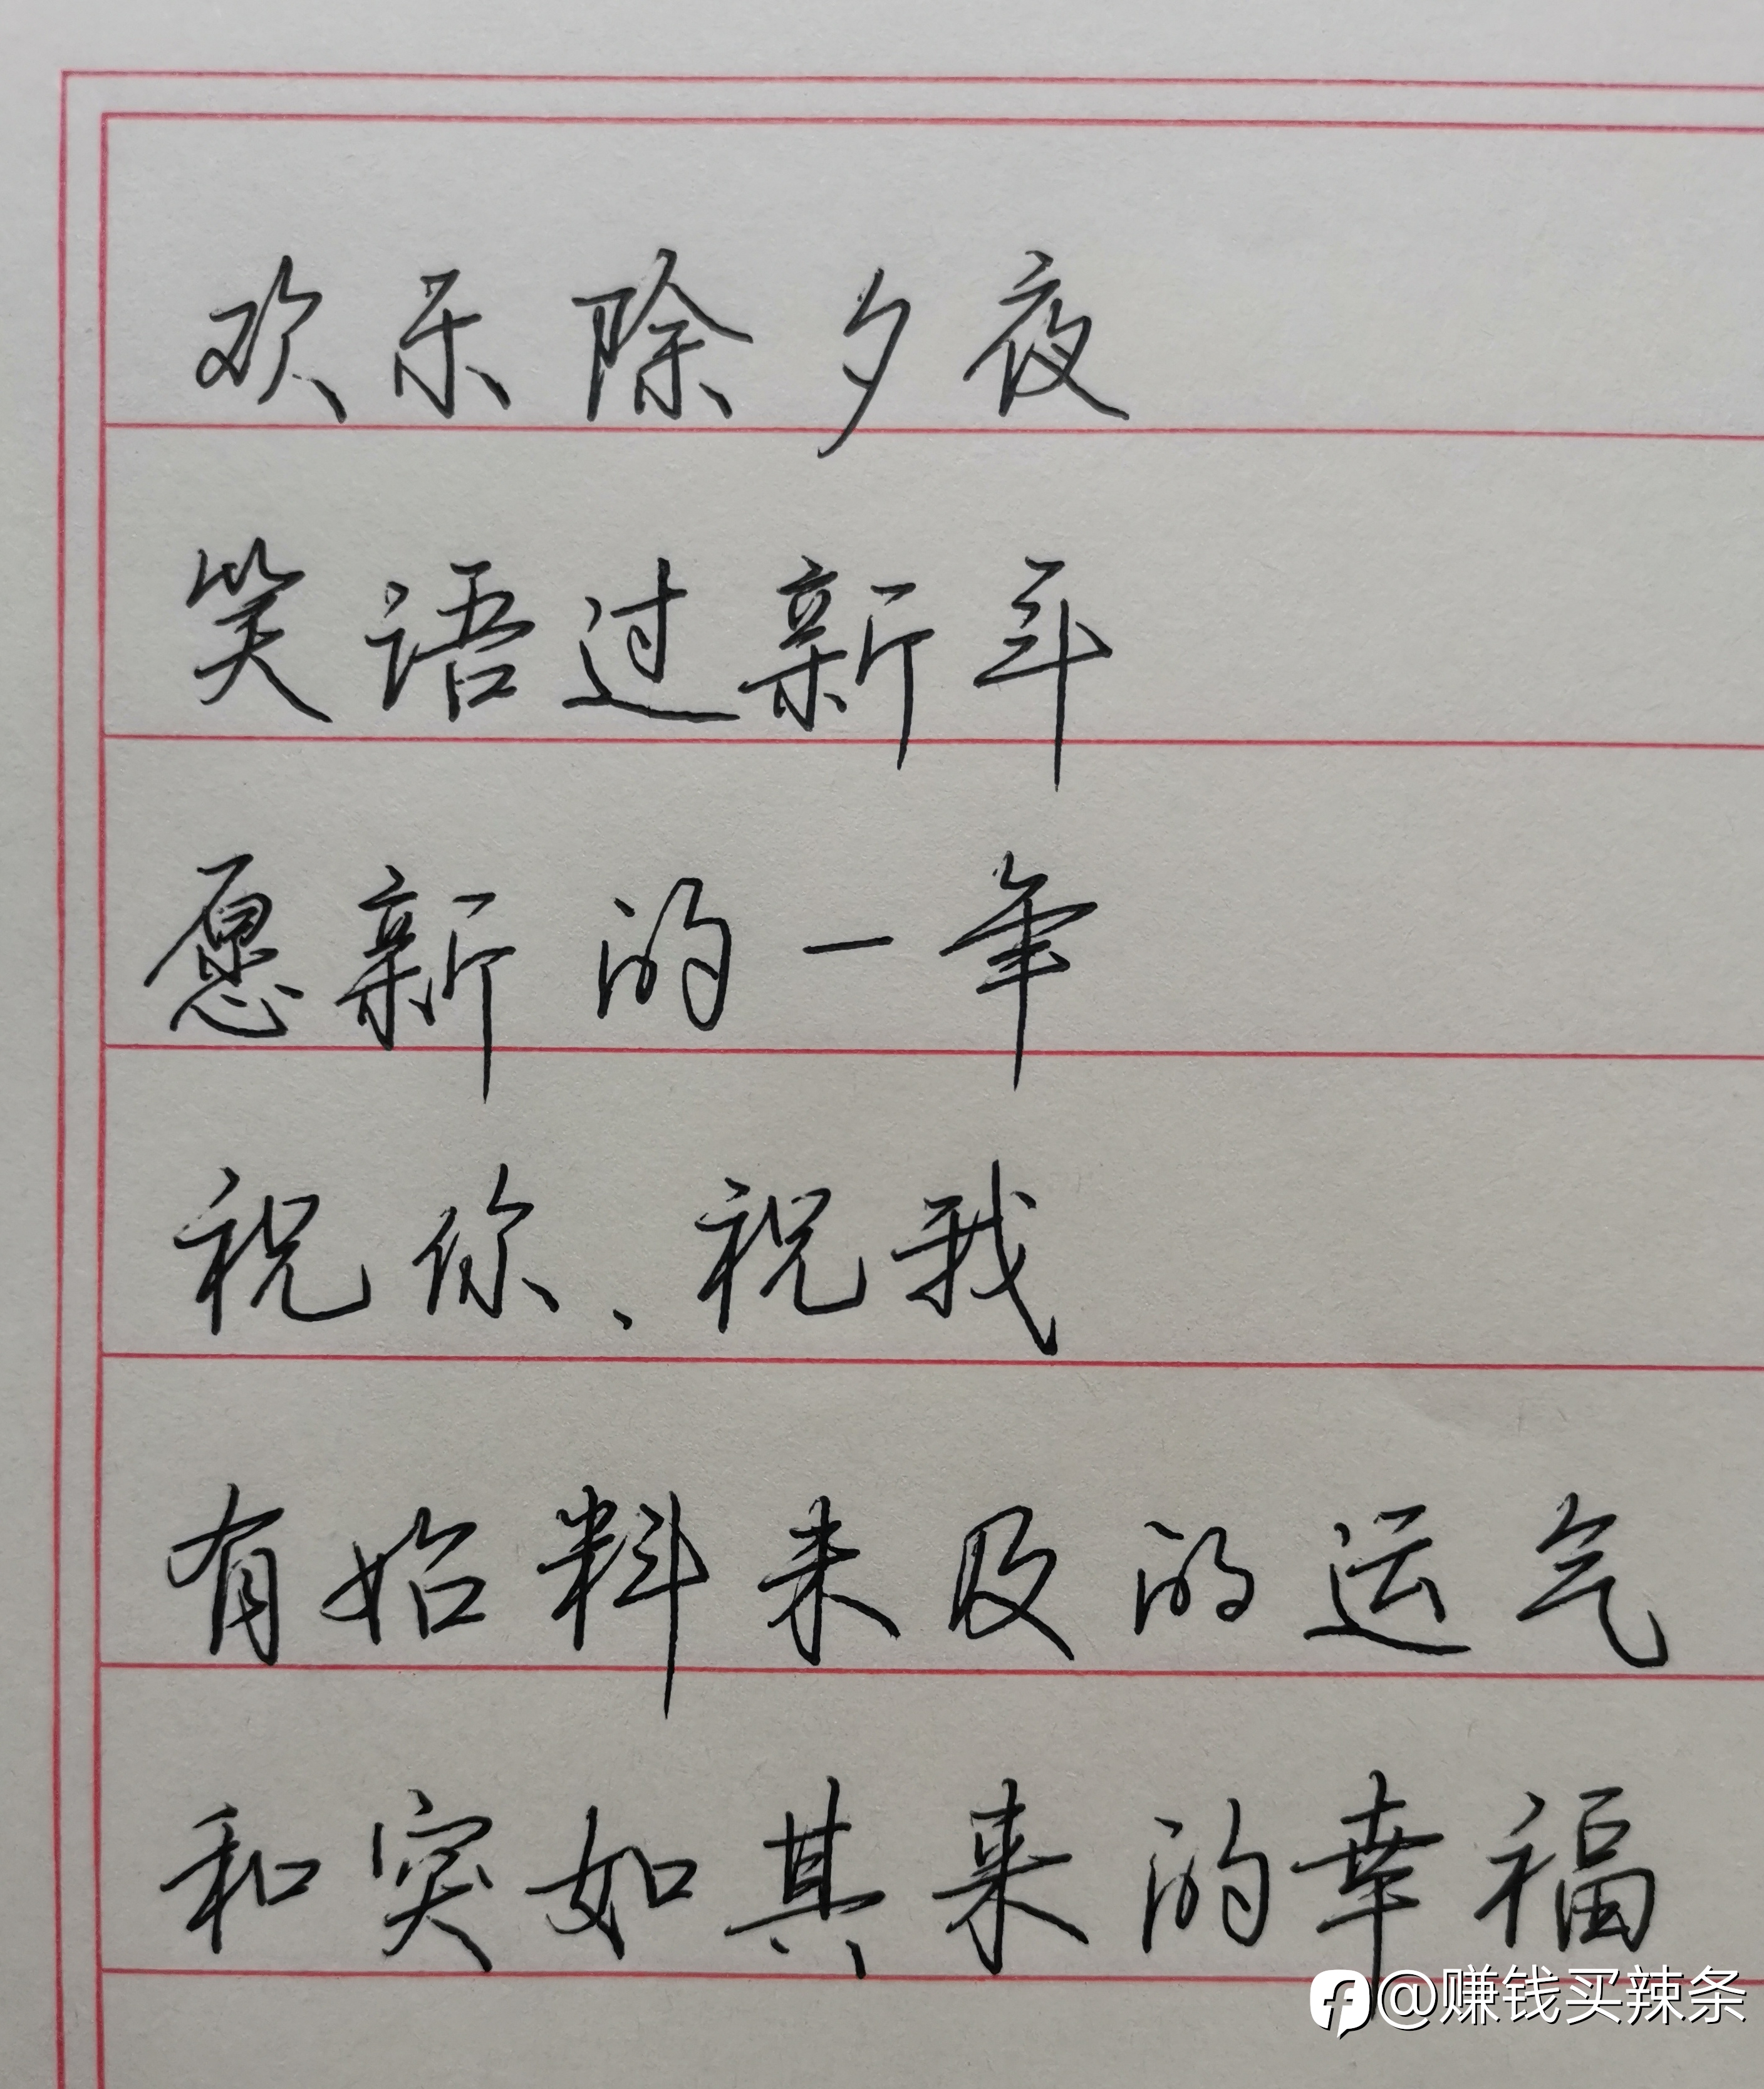 欢乐除夕夜
笑语过新年
愿新的一年
祝你、祝我
有始料未及的运气
和突如其来的幸福
@赚钱买辣条